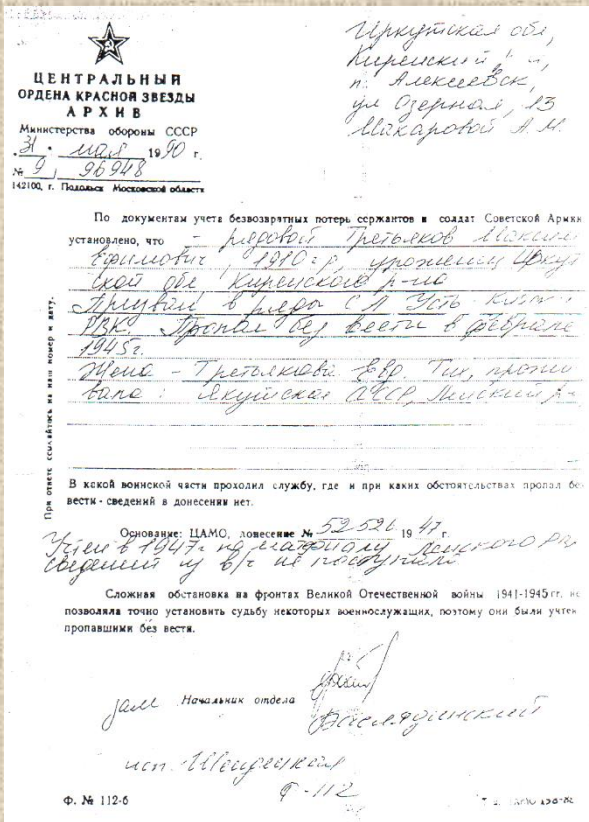 ЦЕНТРАЛЬНЫЙ
ОРДЕНА КРАСНОЙ ЗВЕЗДЫ
АРХИВ
Министерства обороны СССР
31 мая 1990 г.
№ 9/96948
142100, г. Подольск Московской области
Иркутская обл,
Киренский
п. Алексеевск,
ул Озерная, 13
Макаровой А.М.
По документам учета безвозвратных потерь сержантов и солдат Советской Армии
установлено, что - рядовой Третьяков Максим
Ефимович, 1910 г.р, уроженец Иркут
ской обл Киренского р-на
Призван в ряды С.А. Усть-
РВК. Пропал без вести в феврале
1945г.
Жена - Третьякова Евд. Тих, прожи
вала: Якутская АССР, Ленский р-
При ответе ссылайтесь на наш номер и дату.
В какой воинской части проходил службу, где и при каких обстоятельствах пропал без
вести - сведений в донесении нет.
Основание: ЦАМО, донесение № 52526 1947 г.
Учтен в 1947г по материалу Ленского
сведений из в/ч не поступило.
Сложная обстановка на фронтах Великой Отечественной войны 1941-1945 гг. не
позволяла точно установить судьбу некоторых военнослужащих, поэтому они были учтены
пропавшими без вести.
зам Начальник отдела
исп.
Ф-112
Ф. № 112-б